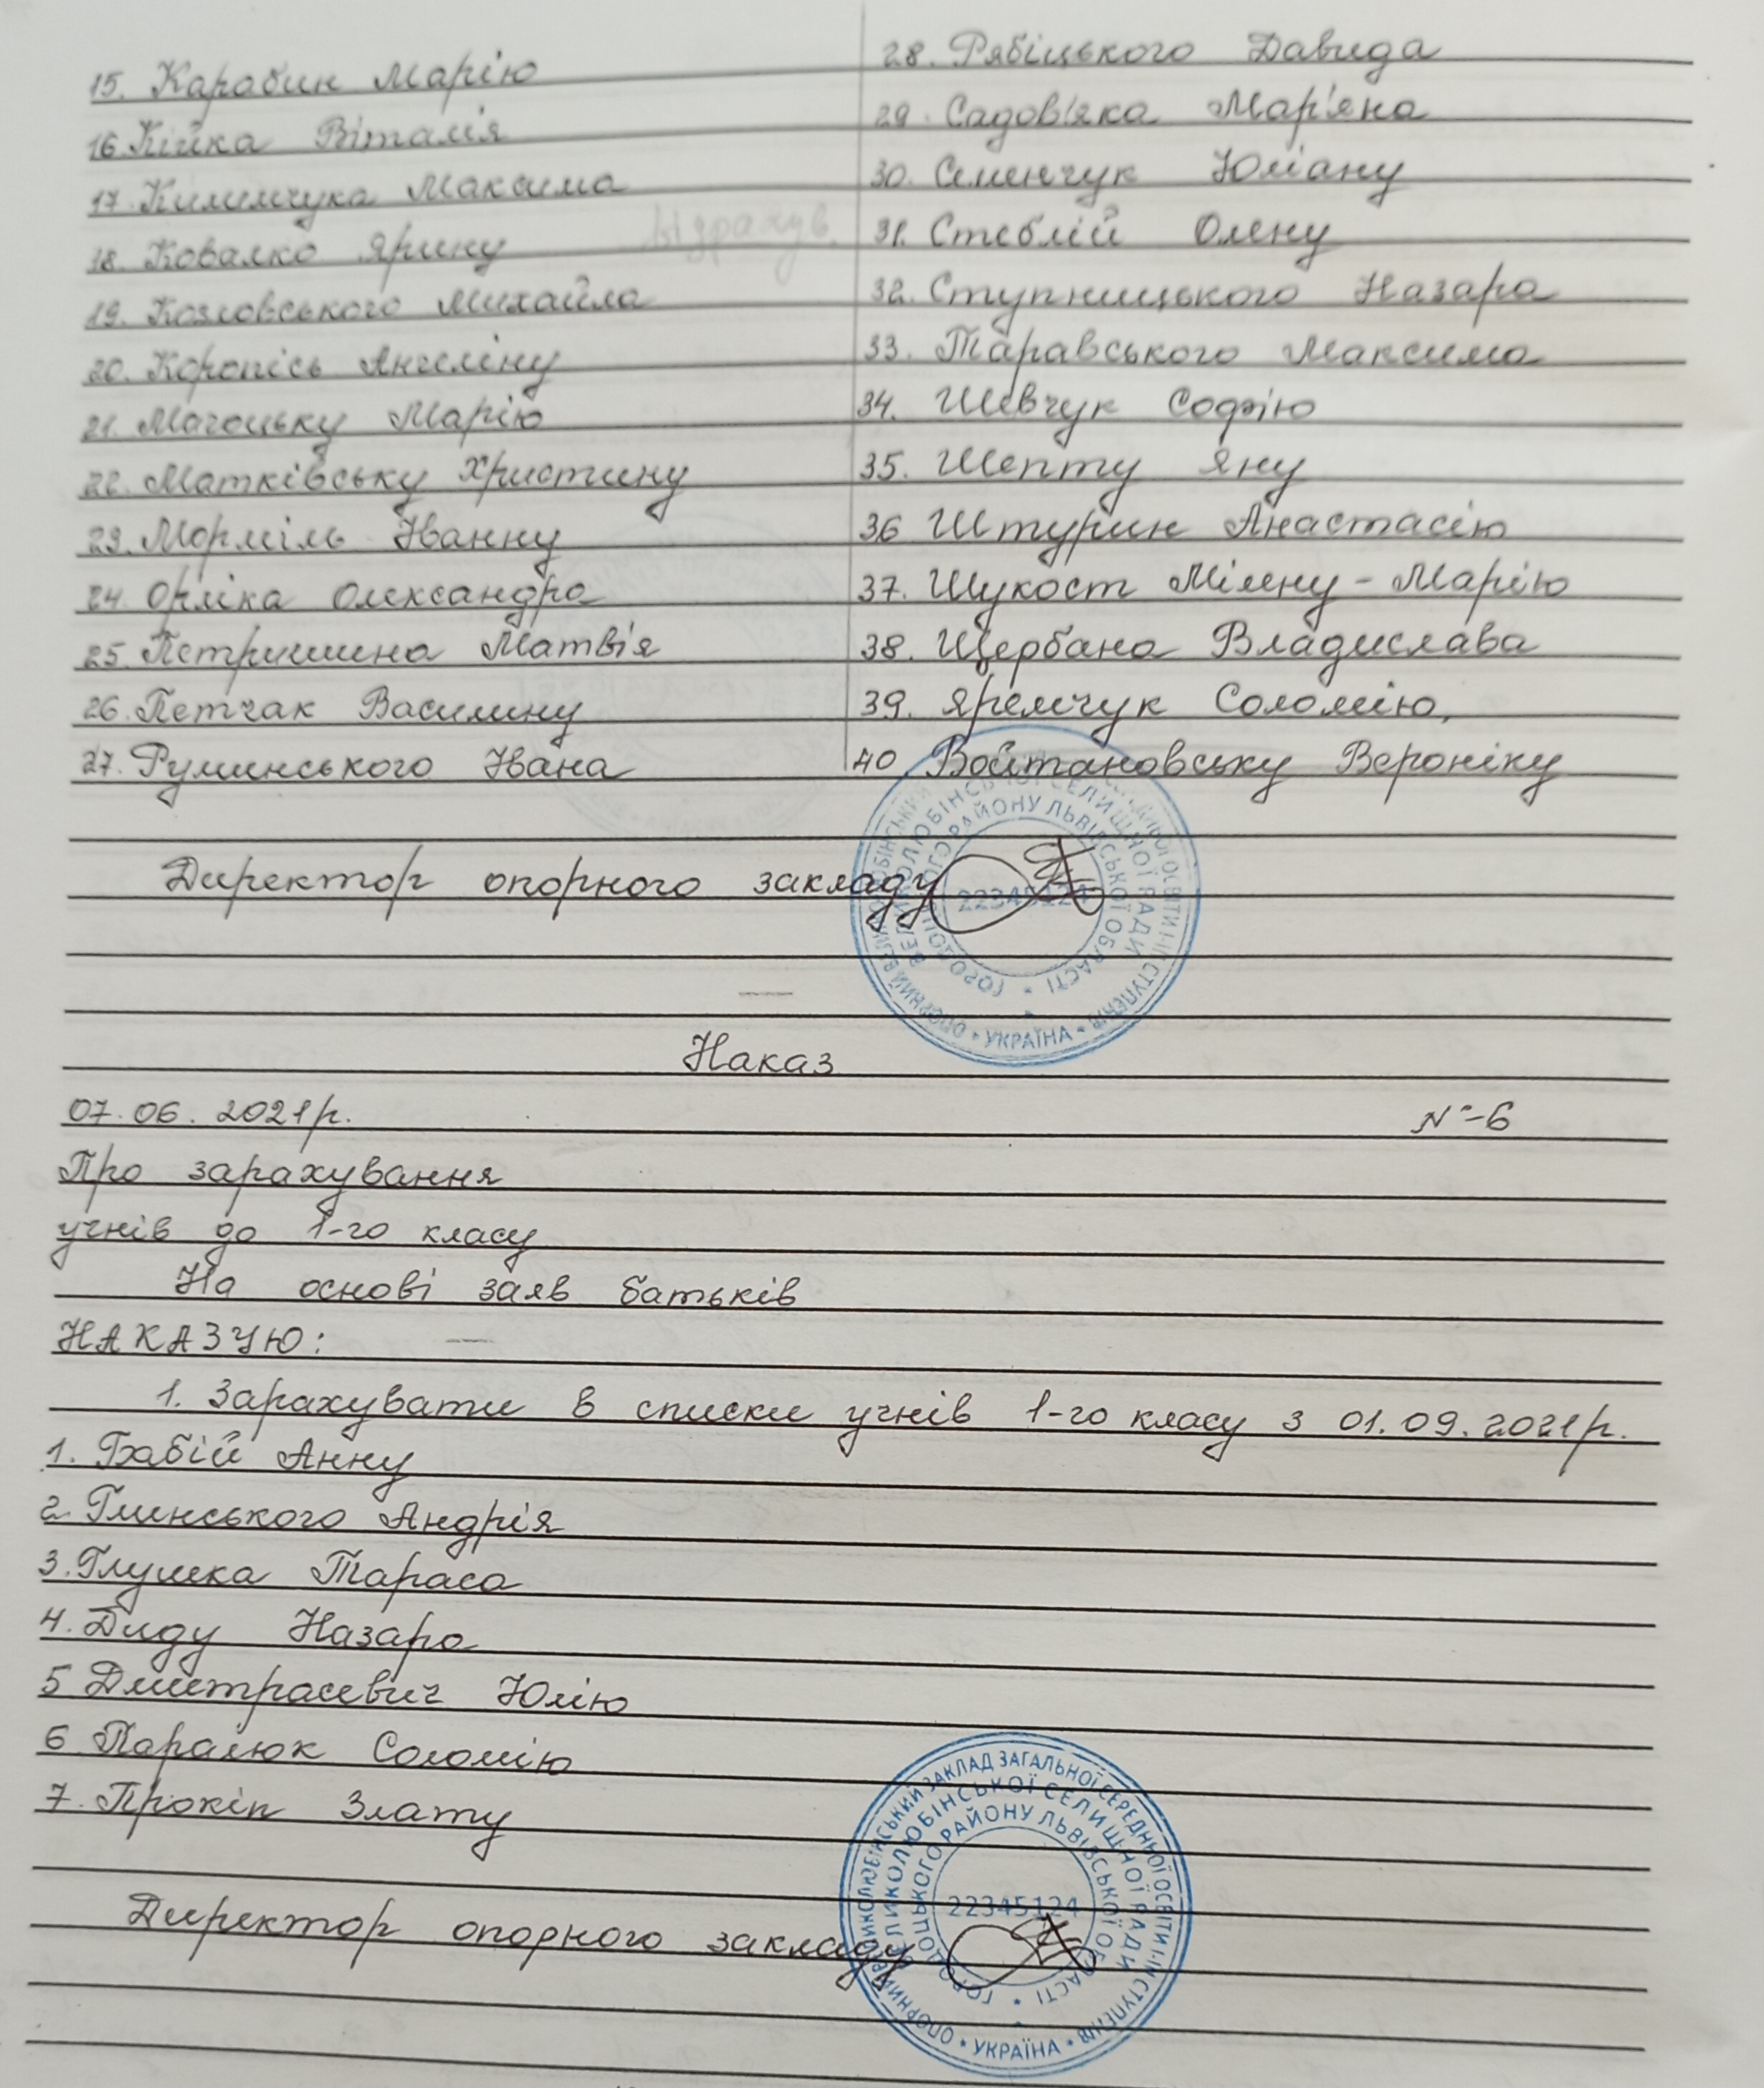 15. Карабин Марію
16. Кійка Віталія
17. Килимчука Максима
18. Ковалко Ярину відрахув.
19. Козловського Михайла
20. Коропісь Ангеліну
21. Магоцьку Марію
22. Матківську Христину
23. Морміль Іванну
24. Орліка Олександра
25. Петришина Матвія
26. Петчак Василину
27. Руминського Івана
28. Рябіцького Давида
29. Садов'яка Мар'яна
30. Семенчук Юліану
31. Стеблій Олену
32. Ступницького Назара
33. Таравського Максима
34. Шевчук Софію
35. Шепту Яну
36 Штурин Анастасію
37. Шукост Мілену-Марію
38. Щербана Владислава
39. Яремчук Соломію,
40 Войтановську Вероніку
Директор опорного закладу
22345124
ГОРОДОЦЬКОГО РАЙОНУ ЛЬВІВСЬКОЇ ОБЛАСТІ
ВЕЛИКОЛЮБІНСЬКОЇ СЕЛИЩНОЇ РАДИ
УКРАЇНА
Наказ
07.06.2021р. №-6
Про зарахування
учнів до 1-го класу
На основі заяв батьків
НАКАЗУЮ:
1. Зарахувати в списки учнів 1-го класу з 01.09.2021р.
1. Бабій Анну
2. Глинського Андрія
3. Глушка Тараса
4. Диду Назара
5 Дмитрасевич Юлію
6 Паралюк Соломію
7. Прокіп Злату
Директор опорного закладу
22345124
ОПОРНИЙ ВЕЛИКОЛЮБІНСЬКИЙ ЗАКЛАД ЗАГАЛЬНОЇ СЕРЕДНЬОЇ ОСВІТИ І-ІІІ СТУПЕНІВ
ВЕЛИКОЛЮБІНСЬКОЇ СЕЛИЩНОЇ РАДИ
ГОРОДОЦЬКОГО РАЙОНУ ЛЬВІВСЬКОЇ ОБЛАСТІ
УКРАЇНА